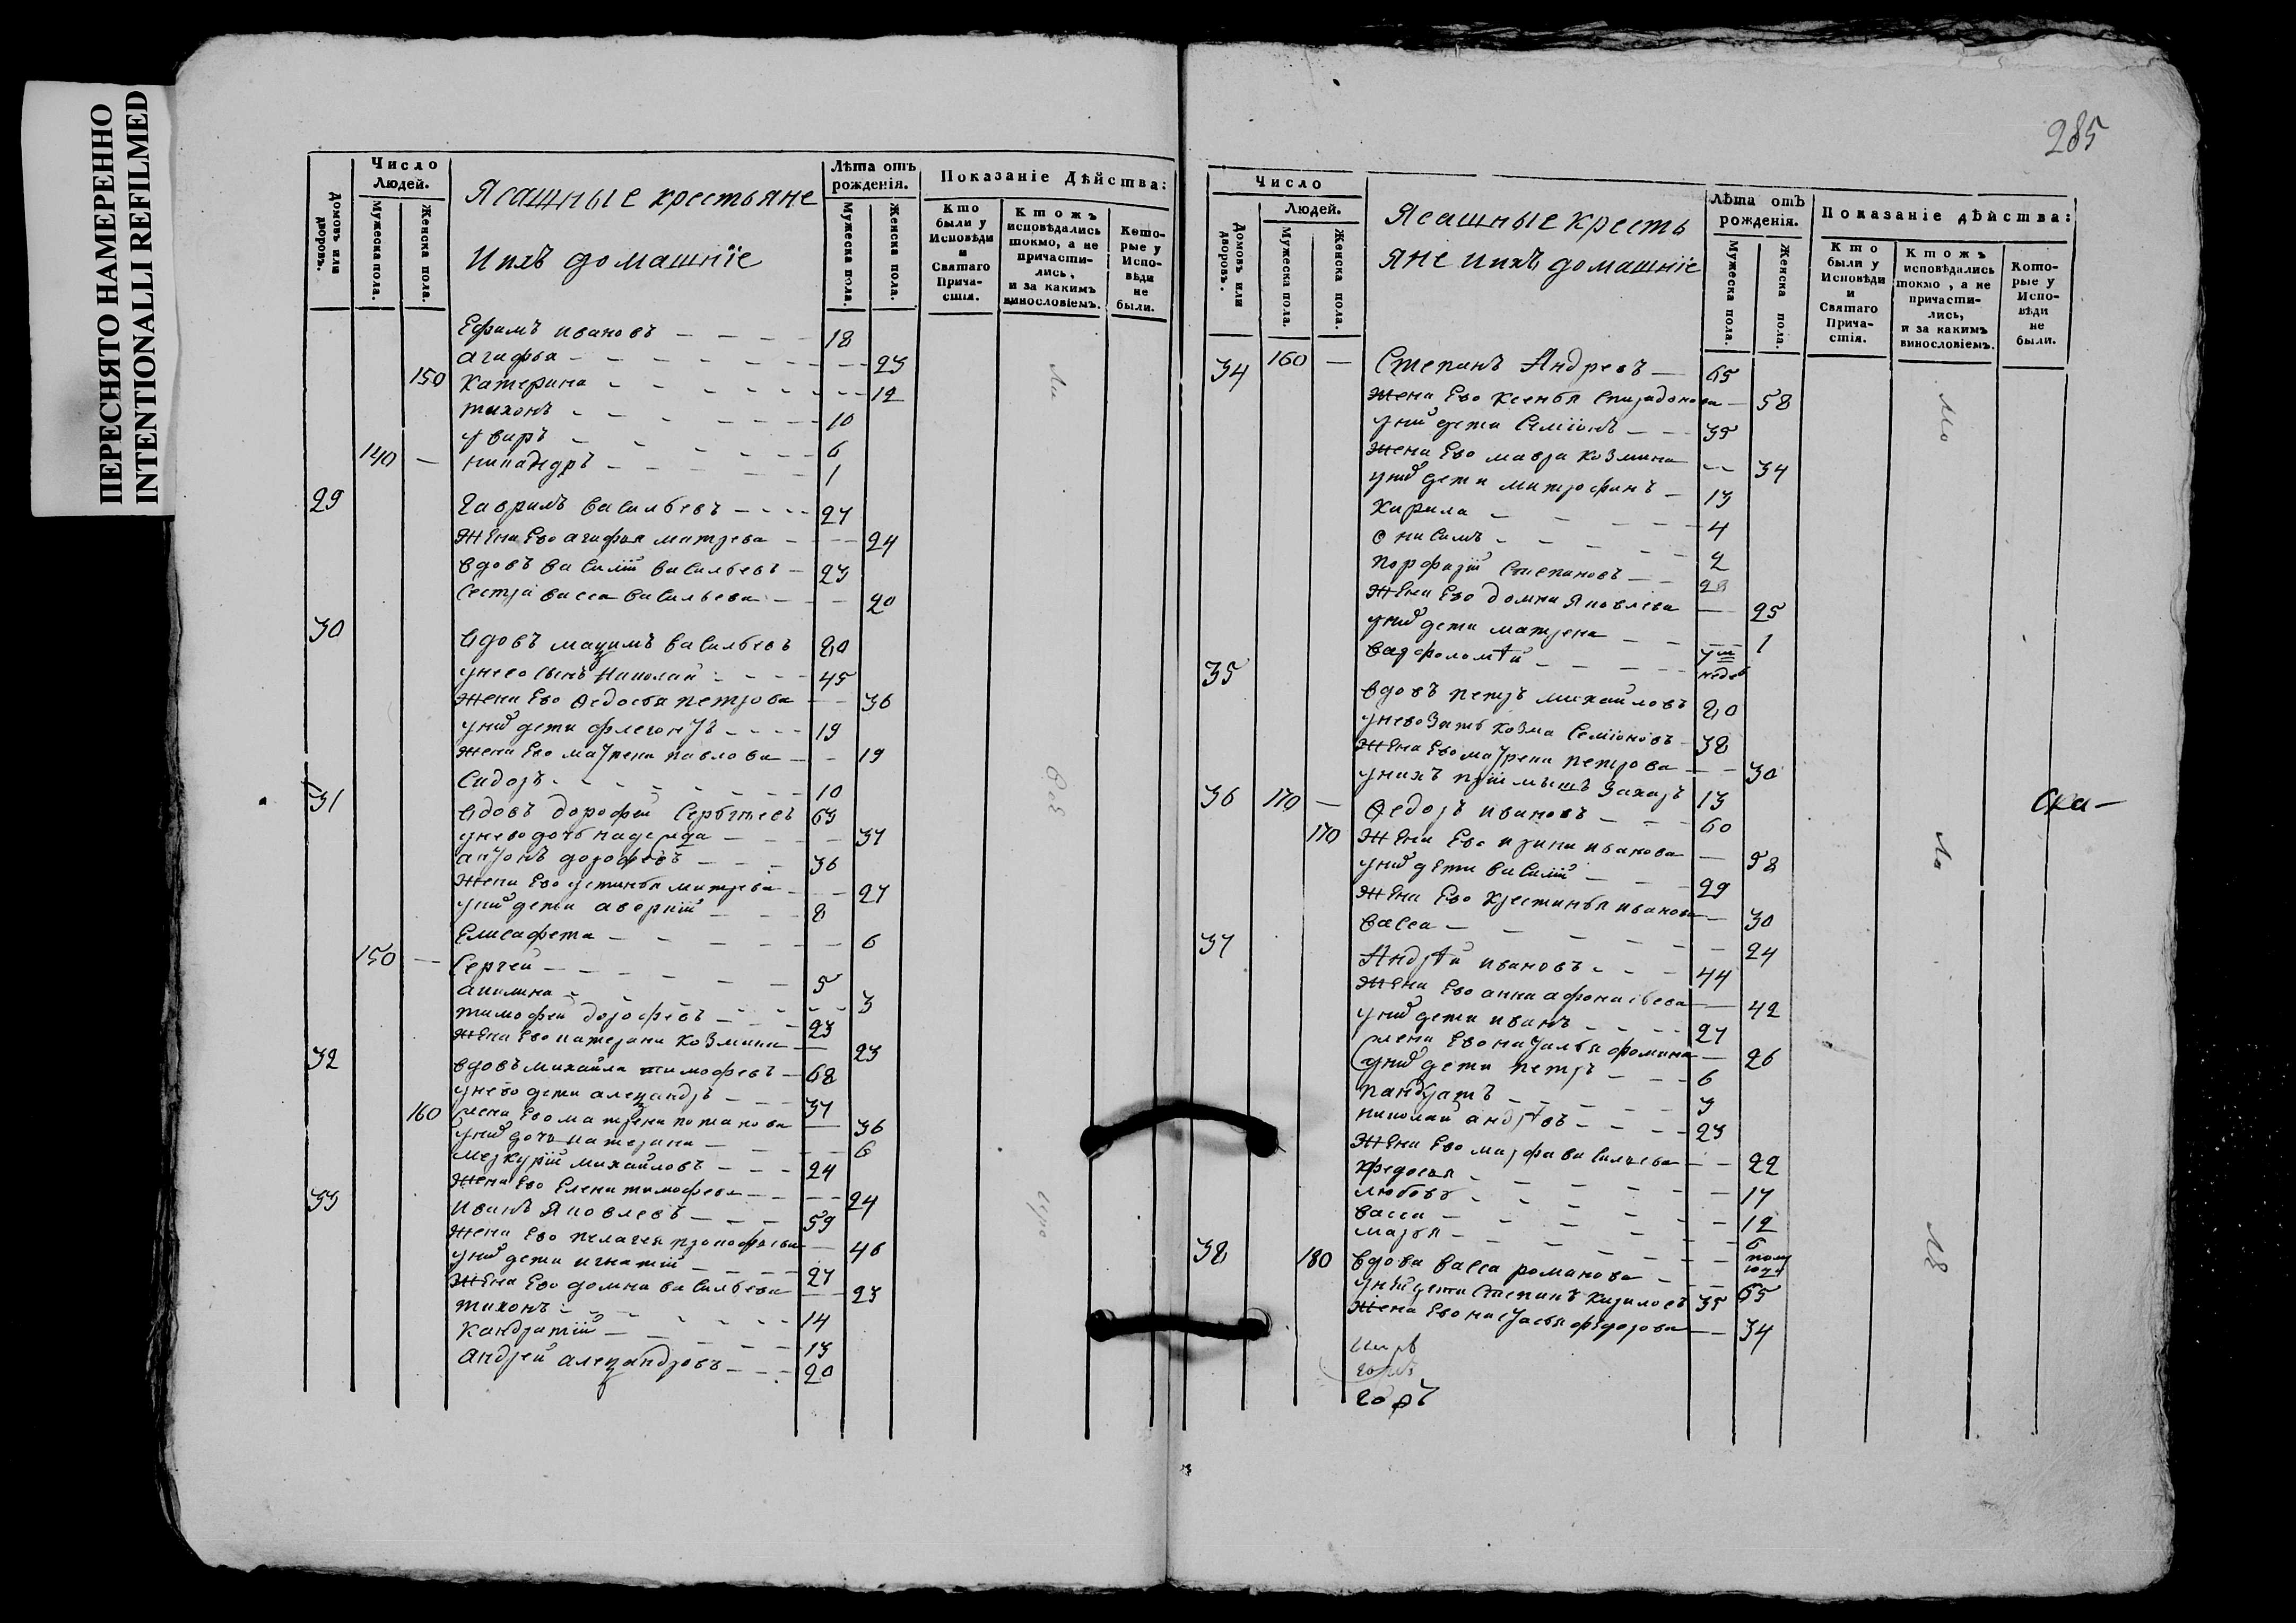 ПЕРЕСНЯТО НАМЕРЕННО
INTENTIONALLI REFILMED
Домовъ или дворовъ.
Число Людей.
Мужеска пола.
Женска пола.
Ясашные крестьяне
Ихъ домашнїе
Лѣта отъ рожденія.
Мужеска пола.
Женска пола.
Показаніе Дѣйства:
Кто были у Исповѣди и Святаго Прича-стія.
Ктожъ исповѣдались токмо, а не причасти-лись, и за какимъ винословіемъ.
Кото-рые у Испо-вѣди не были.
Ефимъ ивановъ 18
агафья 23
150 Катерина 12
тихонъ 10
уваръ 6
140 — никандръ 1
29 Гаврилъ васильевъ 27
жена Ево агафья митрева 24
вдовъ василїй васильевъ 23
Сестра васса васильева 20
30 вдовъ мазимъ васильевъ 80
унево сынъ Николай 45
жена Ево Ѳедосья петрова 36
уних дети флегонтъ 19
жена Ево матрена павлова 19
Сидоръ 10
31 вдовъ дорофей Сергѣевъ 63
унево дочь надежда 37
антонъ дорофеевъ 36
жена Ево устинья митрева 27
уних дети аверкїй 8
Елисафета 6
150 — Сергей 5
акилина 3
тимофей дорофеевъ 23
жена Ево катерина Козмина 23
32 вдовъ михайла тимофеевъ 68
унево дети алезандръ 37
160 жена Ево матрена потапова 36
уних дочь катерина 6
меркурїй михайловъ 24
жена Ево Елена тимофеева 24
33 Иванъ Яковлевъ 59
жена Ево пелагея прокофьева 46
уних дети игнатїй 27
жена Ево домна васильева 23
тихонъ 14
Кандратїй 13
андрей алезандровъ 20
285
Число
Домовъ или дворовъ.
Людей.
Мужеска пола.
Женска пола.
Ясашные кресть
яне ихъ домашнїе
Лѣта отЪ рожденія.
Мужеска пола.
Женска пола.
Показаніе дѣйства:
Кто были у Исповѣди и Святаго Прича-стія.
Ктожъ исповѣдались токмо, а не причасти-лись, и за какимъ винословіемъ.
Кото-рые у Испо-вѣди не были.
34 160 — Степанъ Андреевъ 65
жена Ево Ксенья Спиридонова 58
уних дети Семїонъ 35
жена Ево мавра Козмина 34
уних дети митрофанъ 13
Кирила 4
онисимъ 2
порфирїй Степановъ 28
жена Ево домна Яковлева 25
уних дети матрена 1
варфоломѣй
35 вдовъ петръ михайловъ 80
унево зять козма Семїоновъ 38
жена Ево матрена петрова 30
унихъ прїимышъ Захаръ 13
36 170 — Ѳедоръ ивановъ 60
170 жена Ево ирина иванова 58
уних дети василїй 29
жена Ево Христинья иванова 30
васса 24
37 Андрѣй ивановъ 44
жена Ево анна афонасьева 42
уних дети иванъ 27
жена Ево наталья фомина 26
уних дети петръ 6
панкратъ 3
николай андрѣевъ 23
жена Ево марфа васильева 22
Ѳедосья 17
любовь 12
васса 6
марья пол года
38 180 вдова васса романова 65
уней дети Степанъ Кириловъ 35
жена Ево настасья федорова 34
Ска—